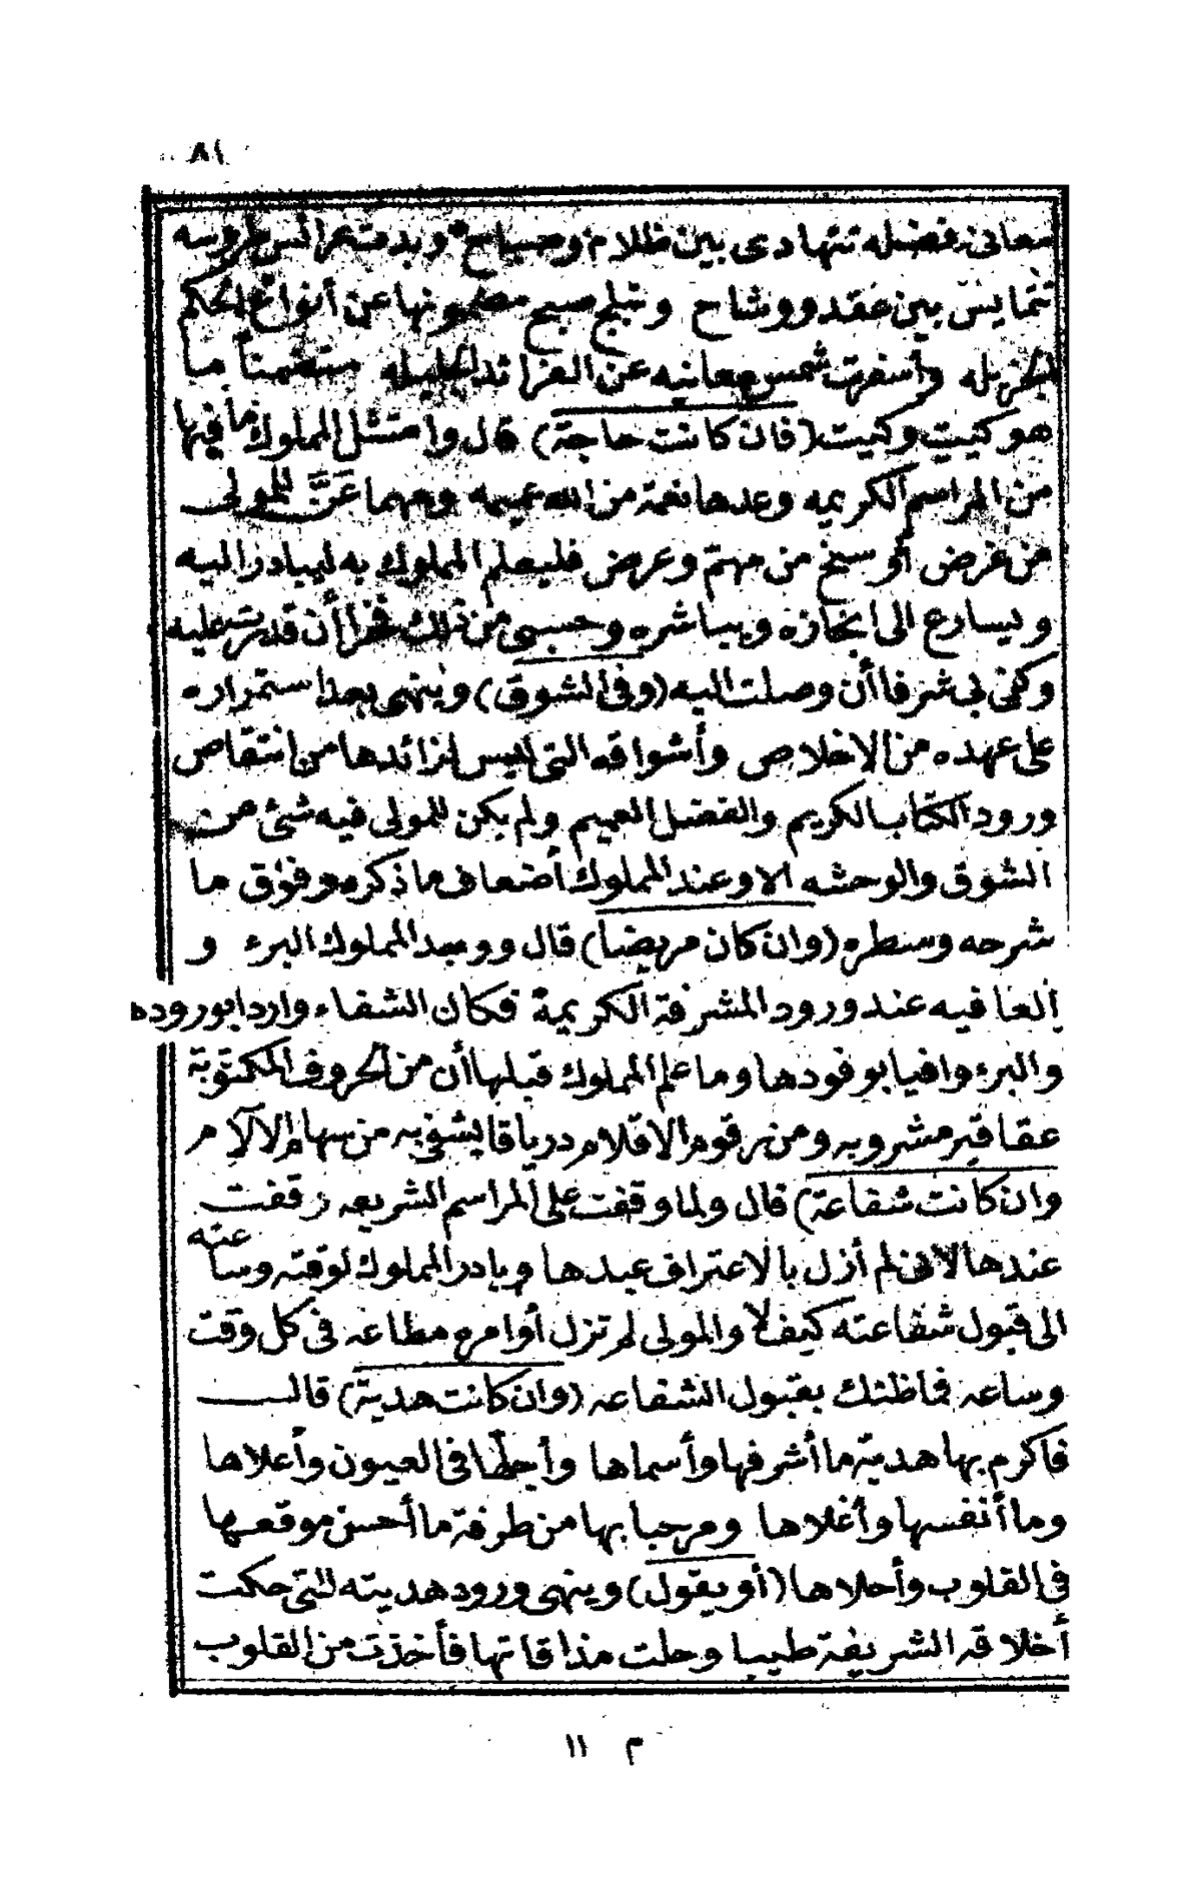 ٨١
معانى فضله تتهادى بين ظلام وصباح وبدت عرائس طروسه
تتمايس بين عقد ووشاح وتبلج صبح مضمونها عن أنواع الحكم
الجزيله وأسفرت شمس معانيه عن الفرائد الجليله متضمنا ما
هو كيت وكيت (فان كانت حاجة) قال وامتثل المملوك ما فيها
من المراسم الكريمه وعدها نعمة من الله عميمه ومهما عَنَّ للمولى
من غرض أو سنح من مهم وعرض فليعلم المملوك به ليبادر اليه
ويسارع الى انجازه ويباشره وحسبى من ذلك فخرا أن قدرت عليه
وكفى بى شرفا أن وصلت اليه (وفى الشوق) وينهى بعد استمراره
على عهده من الاخلاص وأشواقه التى ليس لزائدها من انتقاص
ورود الكتاب الكريم والفضل العميم ولم يكن للمولى فيه شئ من
الشوق والوحشه الا وعند المملوك أضعاف ما ذكره وفوق ما
شرحه وسطره (وان كان مريضا) قال ووجد المملوك البرء و
العافيه عند ورود المشرفة الكريمة فكان الشفاء واردا بوروده
والبرء وافيا بوفودها وما علم المملوك قبلها أن من الحروف المكتوبة
عقاقير مشروبه ومن رقوم الاقلام درياقا يشفى به من سهام الآلام
وان كانت شفاعة) قال ولما وقفت على المراسم الشريعه وقفت
عندها لانى لم أزل بالاعتراف عبدها وبادر المملوك لوقته وساعته
الى قبول شفاعته كيف لا والمولى لم تزل أوامره مطاعه فى كل وقت
وساعه فما ظنك بقبول الشفاعه (وان كانت هدية) قال
فاكرم بها هدية ما أشرفها وأسماها وأجلها فى العيون وأعلاها
وما أنفسها وأغلاها ومرحبا بها من طرفة ما أحسن موقعها
فى القلوب وأحلاها (أو يقول) وينهى ورود هديته التى حكت
أخلاقه الشريفة طيبا وحلت مذاقاتها فأخذت من القلوب
م ١١